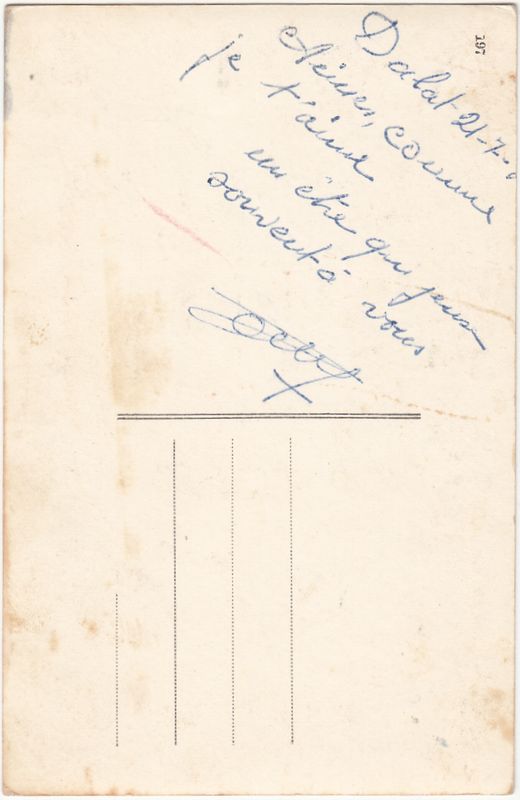 Dalat 21-7-
Aimer, comme
je t'aime
un être qui pense
souvent à vous
197